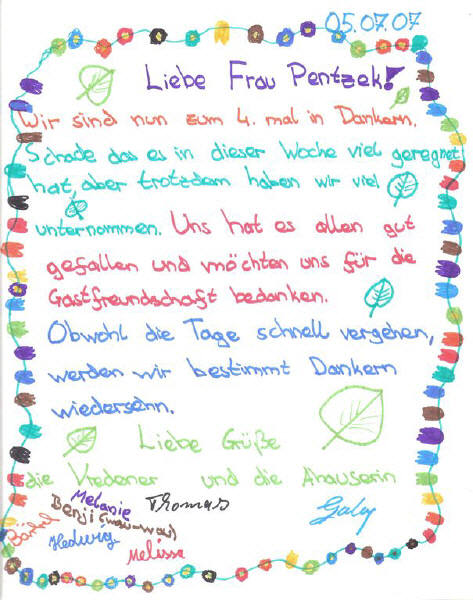 05.07.07
Liebe Frau Pentzek!
Wir sind nun zum 4. mal in Dankern.
Schade das es in dieser Woche viel geregnet
hat, aber trotzdem haben wir viel
unternommen. Uns hat es allen gut
gefallen und möchten uns für die
Gastfreundschaft bedanken.
Obwohl die Tage schnell vergehen,
werden wir bestimmt Dankern
wiedersehn.
Liebe Grüße
die Vredener und die Ahauserin
Melanie Thomas
Benji (wau-wau) Gaby
Bärbel Hedwig
Melissa